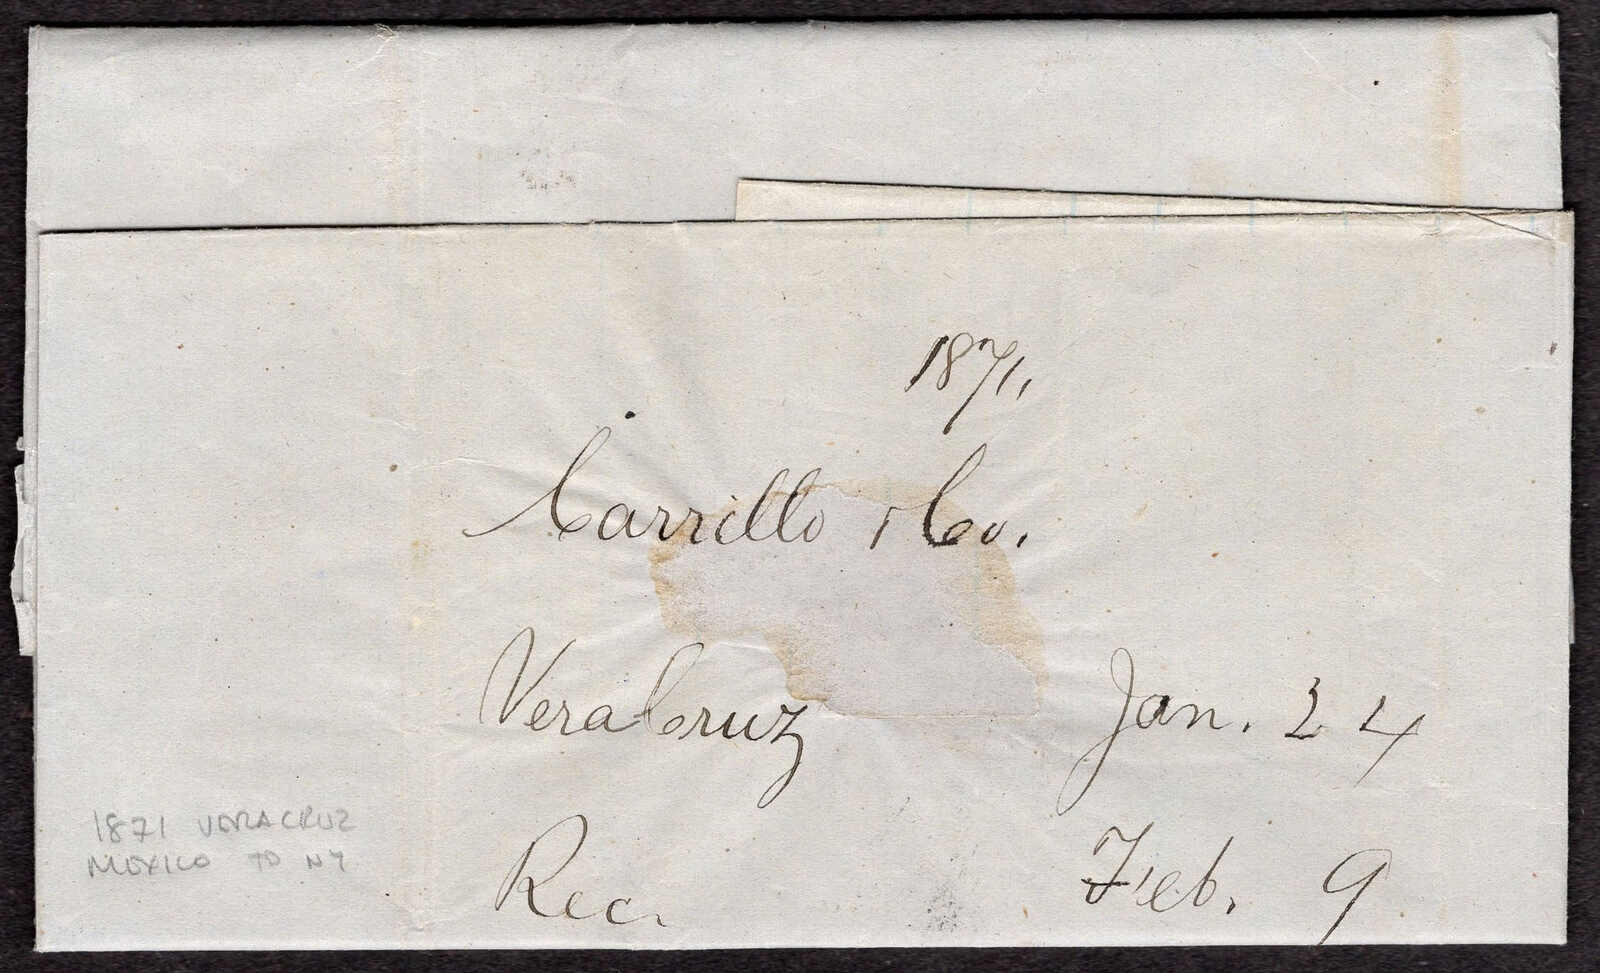 1871,
Carrillo & Co.
Vera Cruz Jan. 24
Rec. Feb. 9
1871 VERACRUZ
MEXICO TO NY